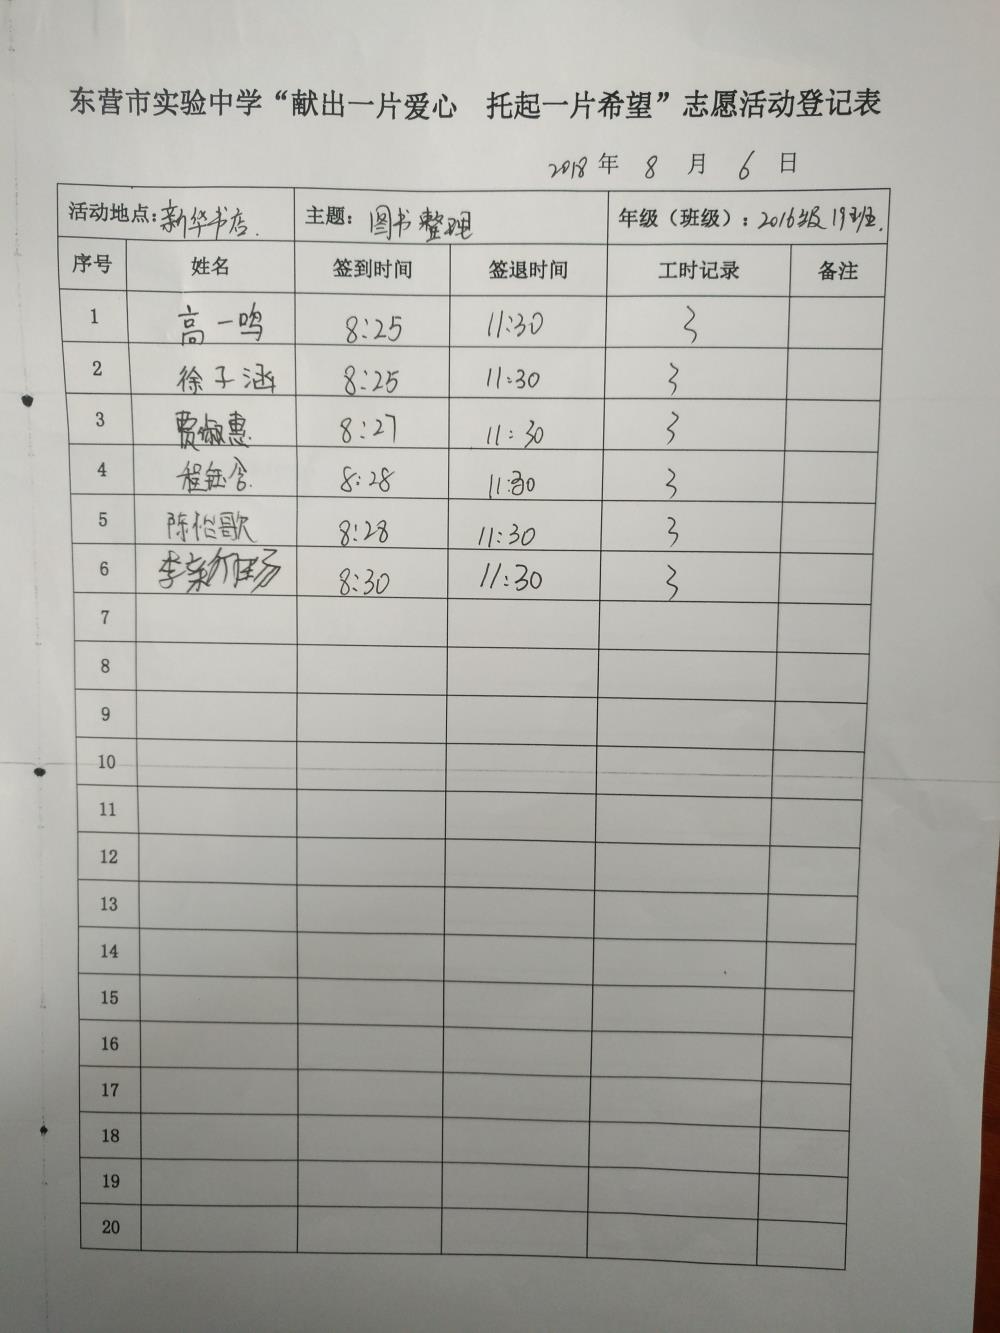 东营市实验中学“献出一片爱心 托起一片希望”志愿活动登记表
2018 年 8 月 6 日
活动地点：新华书店. 主题：图书整理 年级（班级）：2016级19班.
序号 姓名 签到时间 签退时间 工时记录 备注
1 高一鸣 8:25 11:30 3
2 徐子涵 8:25 11:30 3
3 贾淑惠 8:27 11:30 3
4 程钰含 8:28 11:30 3
5 陈怡歌 8:28 11:30 3
6 李 8:30 11:30 3
7
8
9
10
11
12
13
14
15
16
17
18
19
20